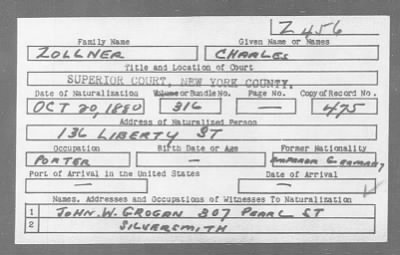 Z456
Family Name Given Name or Names
ZOLLNER CHARLES
Title and Location of Court
SUPERIOR COURT, NEW YORK COUNTY.
Date of Naturalization Volume or Bundle No. Page No. Copy of Record No.
OCT 20, 1880 316 — 475
Address of Naturalized Person
136 LIBERTY ST
Occupation Birth Date or Age Former Nationality
PORTER — EMPEROR GERMANY
Port of Arrival in the United States Date of Arrival
— —
Names, Addresses and Occupations of Witnesses To Naturalization
1 JOHN. W. GROGAN 307 PEARL ST
2 SILVERSMITH